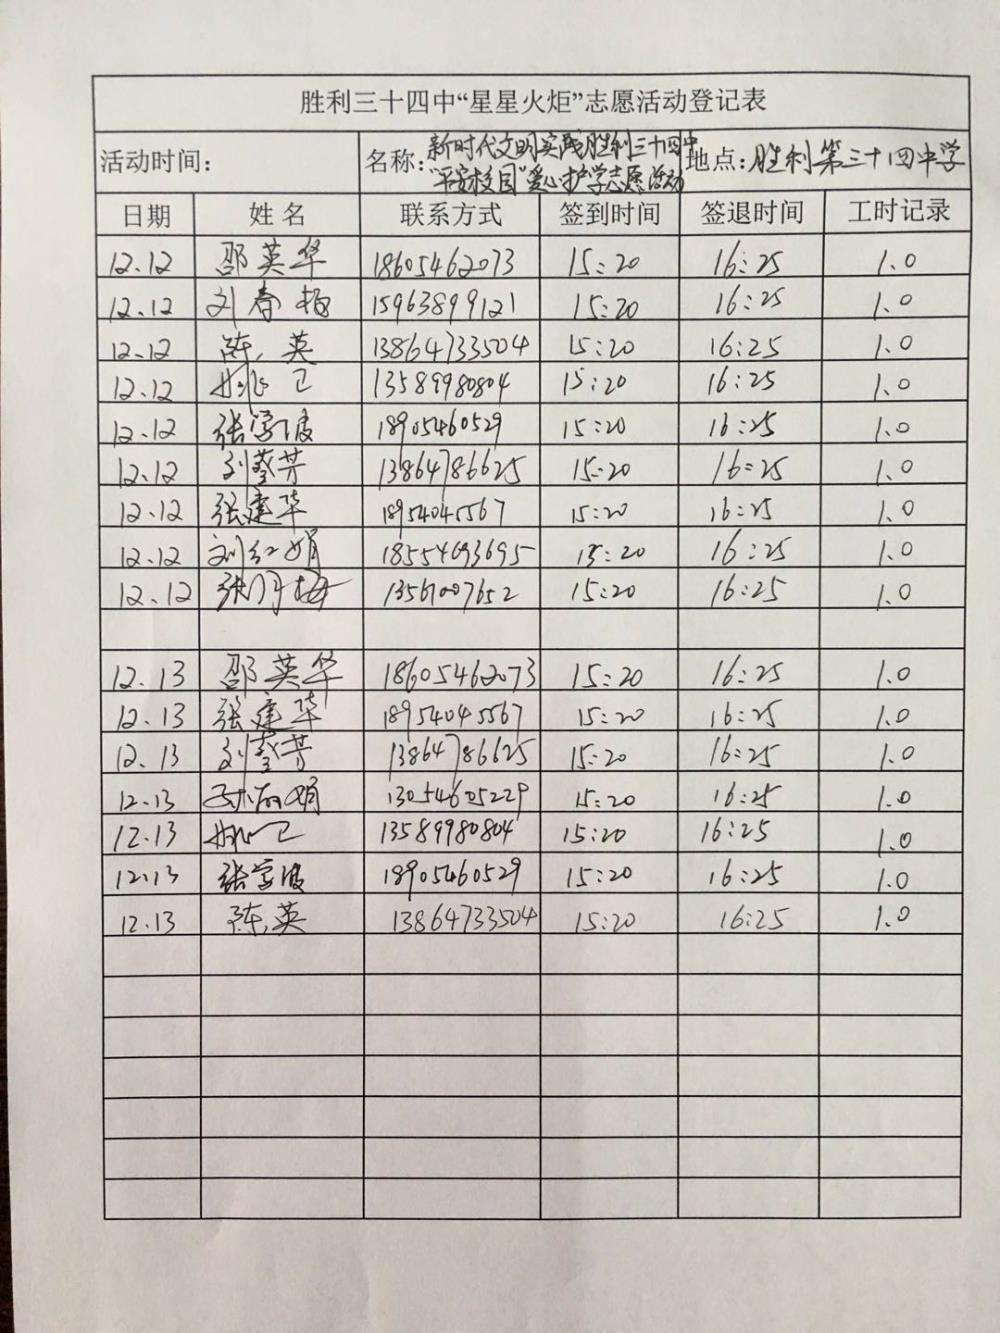 胜利三十四中“星星火炬”志愿活动登记表
活动时间： 名称：新时代文明实践胜利三十四中 地点：胜利第三十四中学
“平安校园”爱心护学志愿活动
日期 姓名 联系方式 签到时间 签退时间 工时记录
12.12 邵英华 18605462073 15:20 16:25 1.0
12.12 刘春梅 15963899121 15:20 16:25 1.0
12.12 陈英 13864733504 15:20 16:25 1.0
12.12 姚卫 13589980804 15:20 16:25 1.0
12.12 张学波 18905460529 15:20 16:25 1.0
12.12 刘蓥芳 13864786625 15:20 16:25 1.0
12.12 张建华 18954045567 15:20 16:25 1.0
12.12 刘红娟 18554693695 15:20 16:25 1.0
12.12 张月梅 13561007652 15:20 16:25 1.0
12.13 邵英华 18605462073 15:20 16:25 1.0
12.13 张建华 18954045567 15:20 16:25 1.0
12.13 刘蓥芳 13864786625 15:20 16:25 1.0
12.13 13054605229 15:20 16:25 1.0
12.13 姚卫 13589980804 15:20 16:25 1.0
12.13 张学波 18905460529 15:20 16:25 1.0
12.13 陈英 13864733504 15:20 16:25 1.0